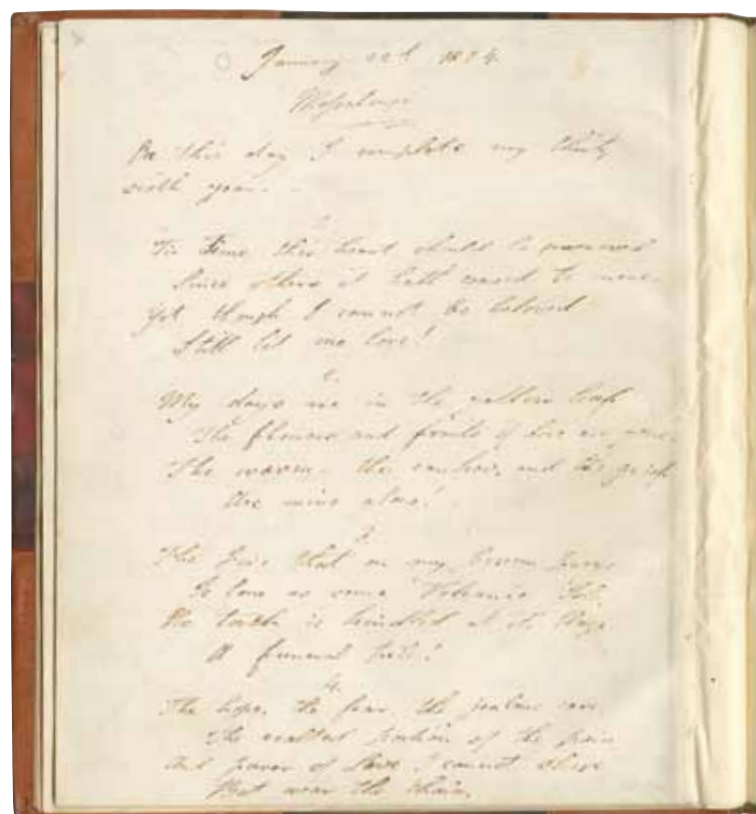 January 22d 1824.
On this day I complete my thirty
sixth year.
1.
'Tis time this heart should be unmoved
Since others it hath ceased to move,
Yet though I cannot be beloved
Still let me love!
2.
My days are in the yellow leaf
The flowers and fruits of love are gone
The worm – the canker, and the grief
Are mine alone!
3.
The fire that on my bosom preys
Is lone as some Volcanic Isle,
No torch is kindled at its blaze
A funeral pile!
4.
The hope, the fear, the jealous care
The exalted portion of the pain
And power of Love I cannot share
But wear the chain.